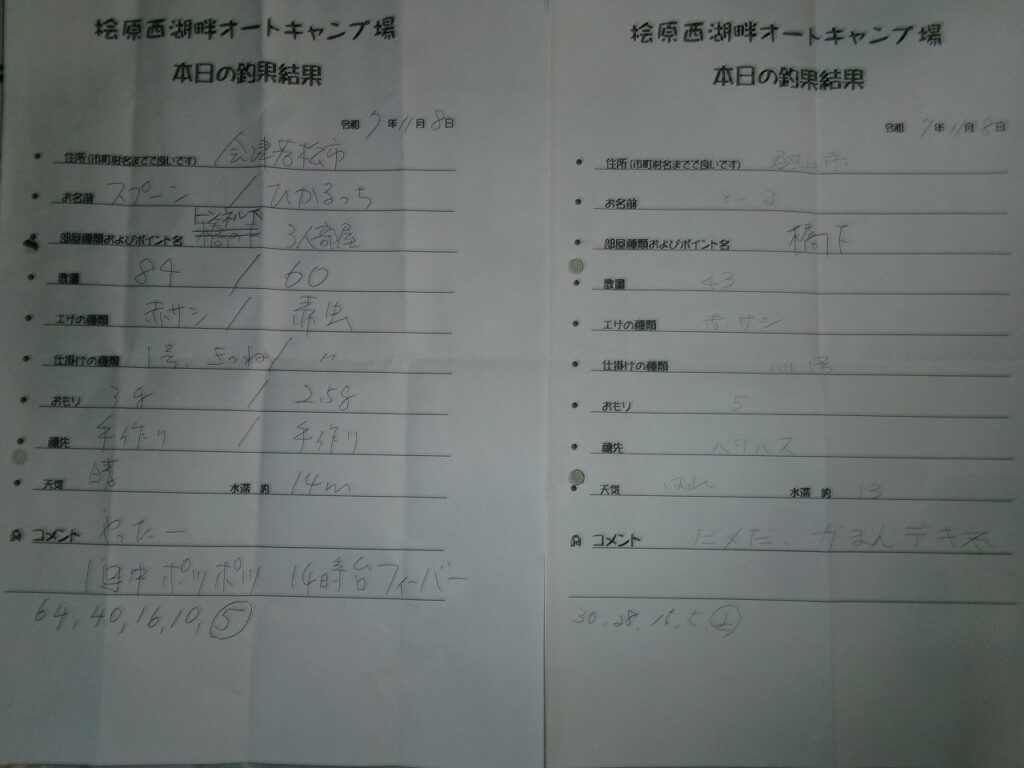 桧原西湖畔オートキャンプ場
本日の釣果結果
令和 7年 11月 8日
住所(市町村名までで良いです) 会津若松市
お名前 スプーン / ひかるっち
部屋種類およびポイント名 トンネル下 3人部屋
数量 84 / 60
エサの種類 赤サシ / 赤虫
仕掛けの種類 1号、きつね / 〃
おもり 3g / 2.5g
穂先 手作り / 手作り
天気 晴 水深 約 14m
コメント やったー
1日中ポツポツ 14時台フィーバー
64, 40, 16, 10, ⑤
桧原西湖畔オートキャンプ場
本日の釣果結果
令和 7年 11月 8日
住所(市町村名までで良いです) 郡山市
お名前 とーる
部屋種類およびポイント名 橋下
数量 43
エサの種類 赤サシ
仕掛けの種類 号
おもり 5
穂先
天気 はれ 水深 約 13
コメント だメだ、がまんデキネ
30, 28, 15, 5, ②